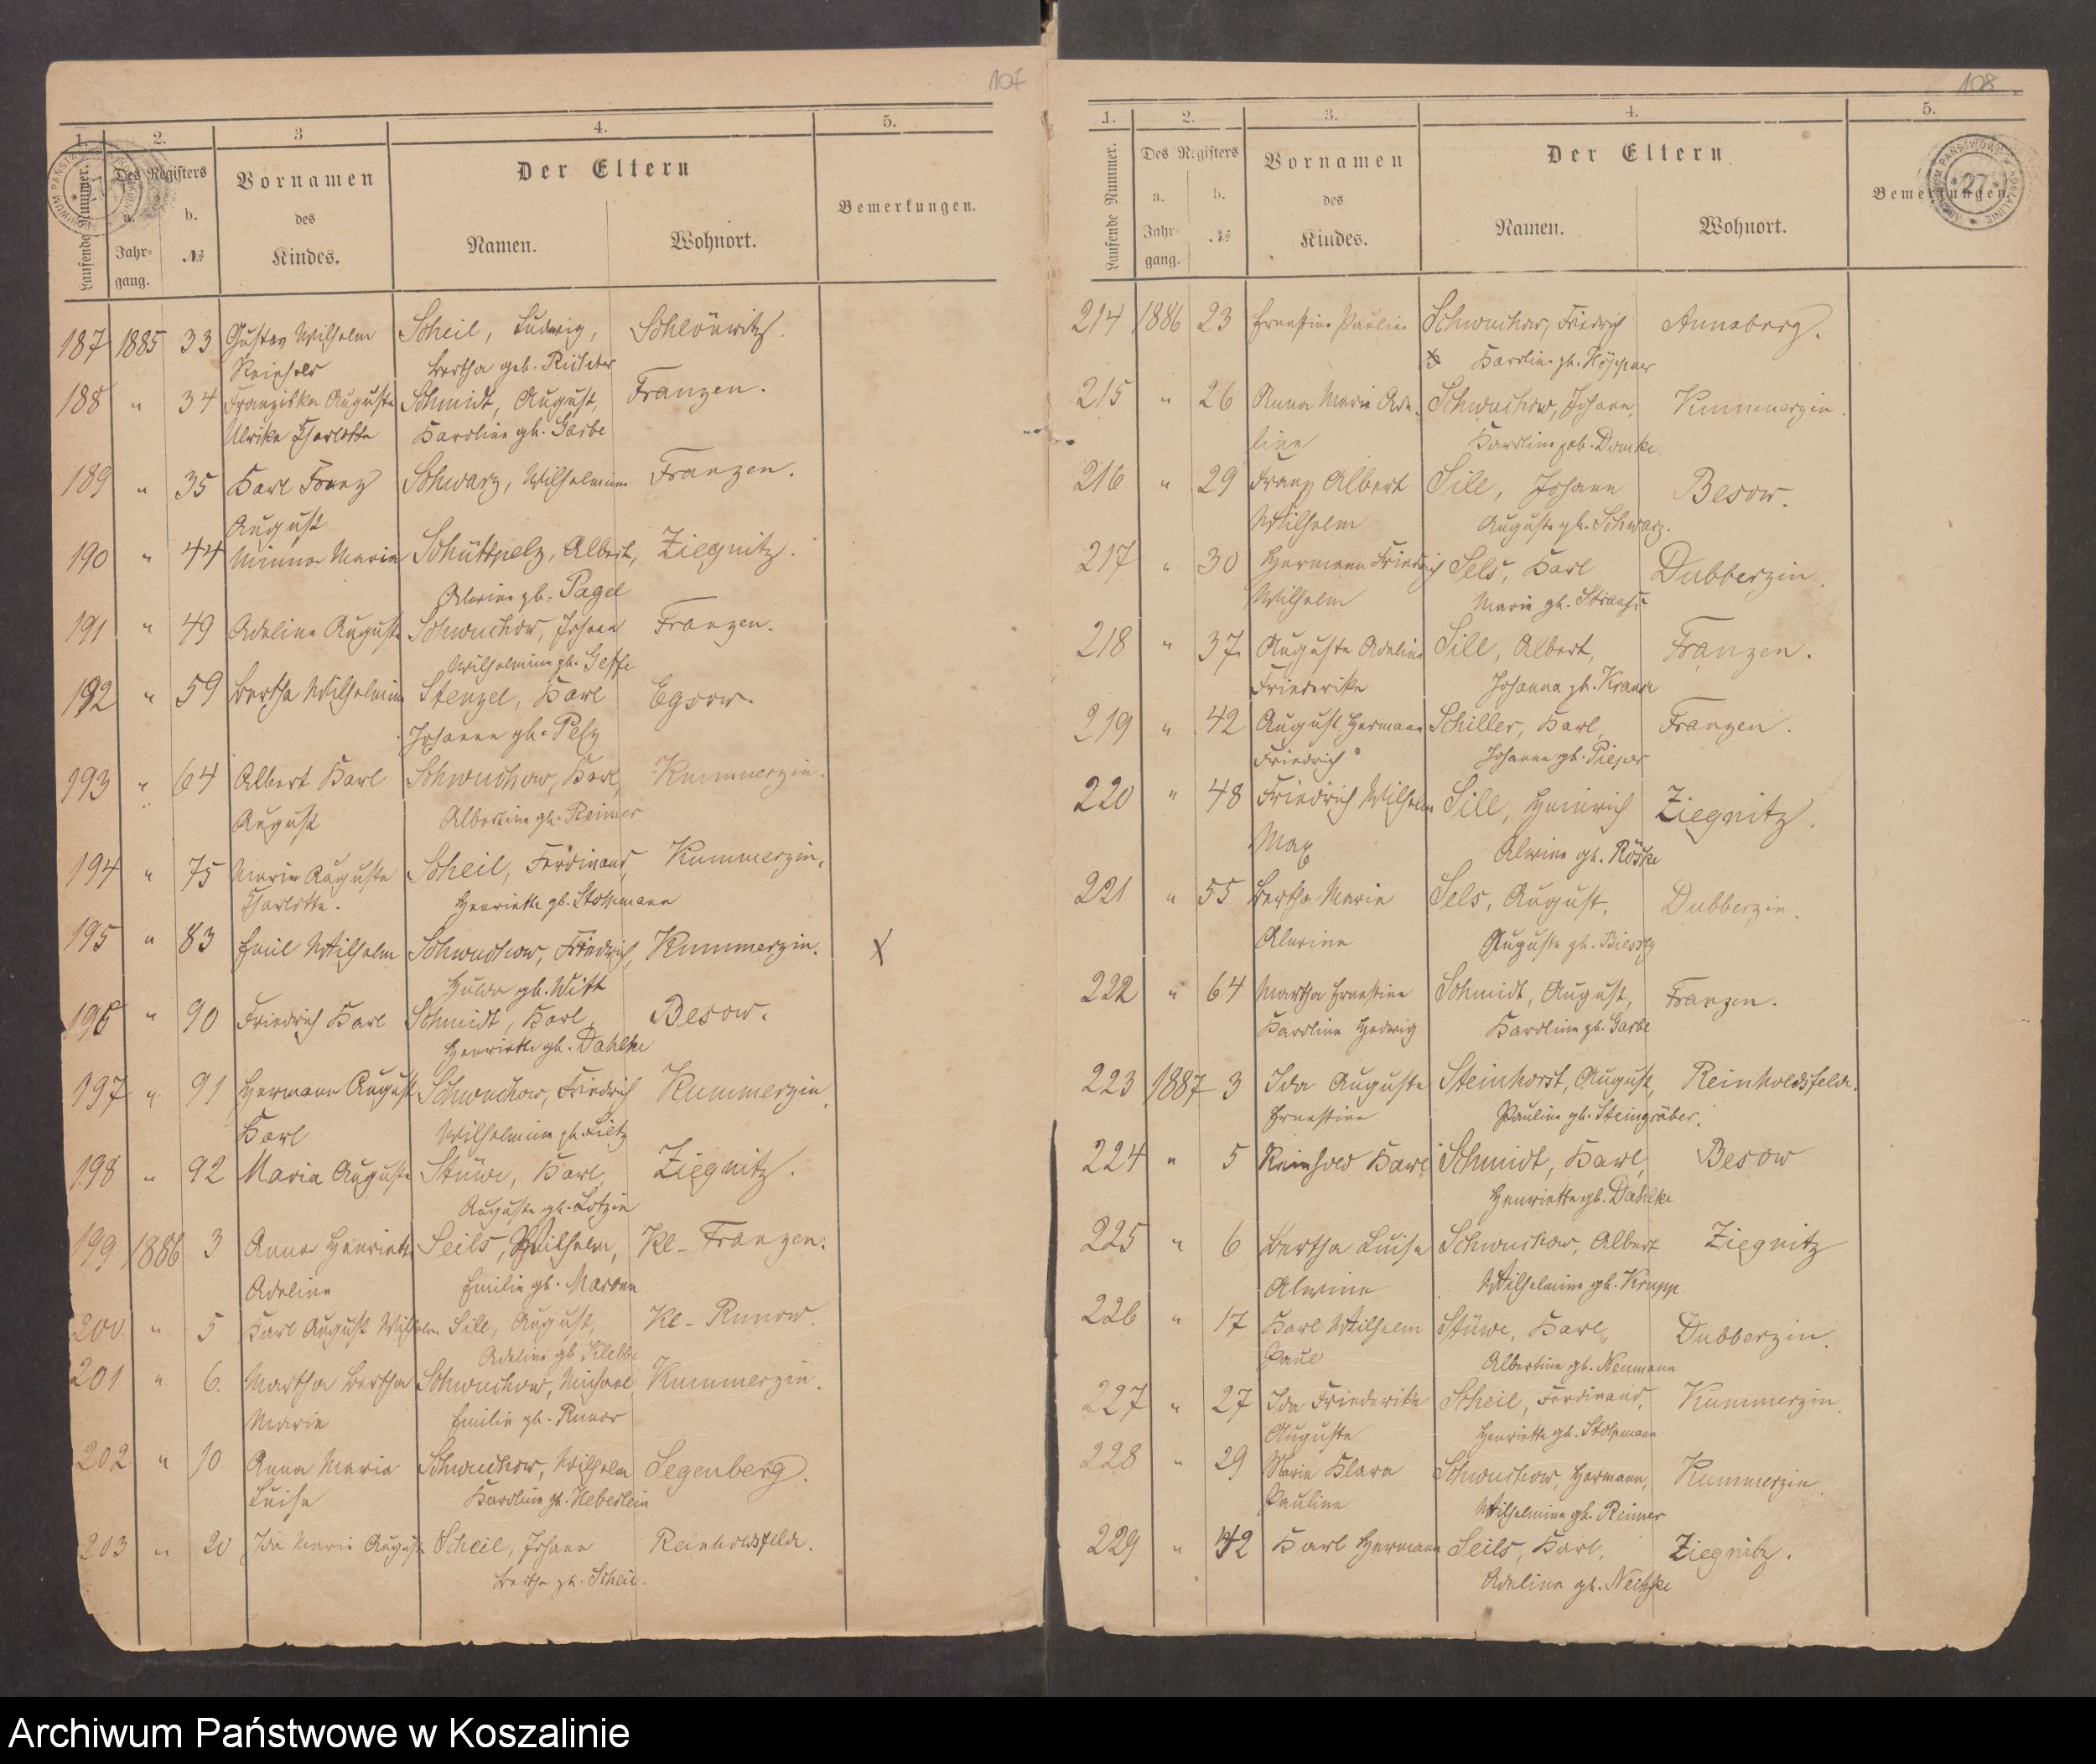 107
1. 2. 3 4. 5.
Laufende Nummer. Des Registers Vornamen des Kindes. Der Eltern Bemerkungen.
a. Jahrgang. b. № Namen. Wohnort.
187 1885 33 Gustav Wilhelm Scheil, Ludwig, Schlönwitz.
Reinhold Bertha geb. Rüchter
188 " 34 Franziska Auguste Schmidt, August, Franzen.
Ulrike Charlotte Karoline gb. Garbe
189 " 35 Karl Franz Schwarz, Wilhelmine Franzen.
August
190 " 44 Minna Marie Schüttpelz, Albert, Ziegnitz.
Alwine gb. Pagel
191 " 49 Adeline Auguste Schwuchow, Johann Franzen.
Wilhelmine gb. Geffe
192 " 59 Bertha Wilhelmine Stenzel, Karl Egsow.
Johanne gb. Pelz
193 " 64 Albert Karl Schwuchow, Karl, Kummerzin.
August Albertine gb. Reimer
194 " 75 Marie Auguste Scheil, Ferdinand, Kummerzin.
Charlotte. Henriette gb. Stolpmann
195 " 83 Emil Wilhelm Schwuchow, Friedrich, Kummerzin. X
Hulda gb. Witt
196 " 90 Friedrich Karl Schmidt, Karl, Besow.
Henriette gb. Dahlke
197 " 91 Hermann August Schwuchow, Friedrich Kummerzin.
Karl Wilhelmine gb. Lietz
198 " 92 Maria Auguste Stüwe, Karl, Ziegnitz.
Auguste gb. Lotzin
199 1886 3 Anna Henriette Seils, Wilhelm, Kl- Franzen.
Adeline Emilie gb. Marone
200 " 5 Karl August Wilhelm Sill, August, Kl- Runow.
Adeline gb Klebbe
201 " 6. Martha Bertha Schwuchow, Michael, Kummerzin.
Marie Emilie gb. Runow
202 " 10 Anna Marie Schwuchow, Wilhelm Segenberg.
Luise Karoline gb. Heberlein
203 " 20 Ida Marie Auguste Scheil, Johann Reinholdsfelde.
Bertha gb. Scheil.
108
1. 2. 3. 4. 5.
Laufende Nummer. Des Registers Vornamen des Kindes. Der Eltern Bemerkungen.
a. Jahrgang. b. № Namen. Wohnort.
27
214 1886 23 Ernestine Pauline Schwuchow, Friedrich Annaberg.
Karoline gb. Köppner
215 " 26 Anna Marie Ade- Schwuchow, Johann, Kummerzin.
line Karoline geb. Domke
216 " 29 Franz Albert Sill, Johann Besow.
Wilhelm Auguste gb. Schwarz.
217 " 30 Hermann Friedrich Sels, Karl Dubberzin.
Wilhelm Marie gb. Strauss
218 " 37. Auguste Adeline Sill, Albert, Franzen.
Friederike Johanna gb. Krause
219 " 42 August Hermann Schiller, Karl, Franzen.
Friedrich Johanne gb. Pieper
220 " 48 Friedrich Wilhelm Sill, Heinrich Ziegnitz.
Max Alwine gb. Röske
221 " 55 Bertha Marie Sels, August, Dubberzin.
Alwine Auguste gb.
222 " 64 Martha Ernestine Schmidt, August, Franzen.
Karoline Hedwig Karoline gb. Garbe
223 1887 3 Ida Auguste Steinhorst, August, Reinholdsfelde.
Ernestine Pauline gb. Steingräber.
224 " 5 Reinhold Karl Schmidt, Karl, Besow
Henriette gb. Dahlke
225 " 6 Bertha Luise Schwuchow, Albert Ziegnitz
Alwine Wilhelmine gb. Krupp
226 " 17 Karl Wilhelm Stüwe, Karl, Dubberzin.
Paul Albertine gb. Neumann
227 " 27 Ida Friederike Scheil, Ferdinand, Kummerzin.
Auguste Henriette gb. Stolpmann
228 " 29 Marie Klara Schwuchow, Hermann, Kummerzin.
Pauline Wilhelmine gb. Reimer
229 " 42 Karl Hermann Seils, Karl, Ziegnitz.
Adeline gb. Neitzke
Archiwum Państwowe w Koszalinie